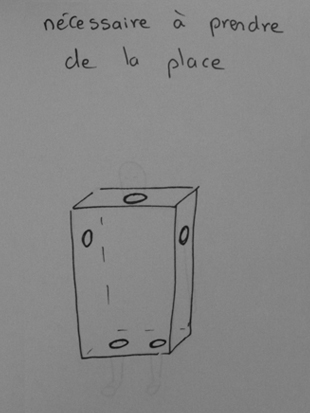 nécessaire à prendre
de la place